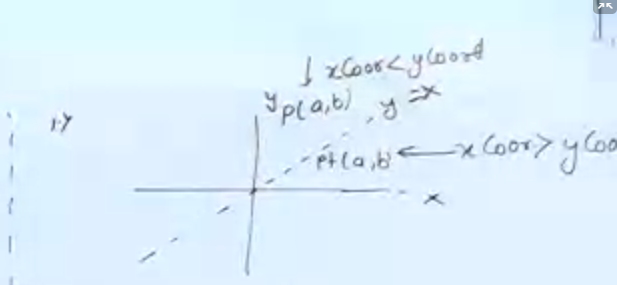 ↓ xcoor < ycoord
y P(a,b) , y = x
1·y
Pt(a,b) ← x coor > y coo
x